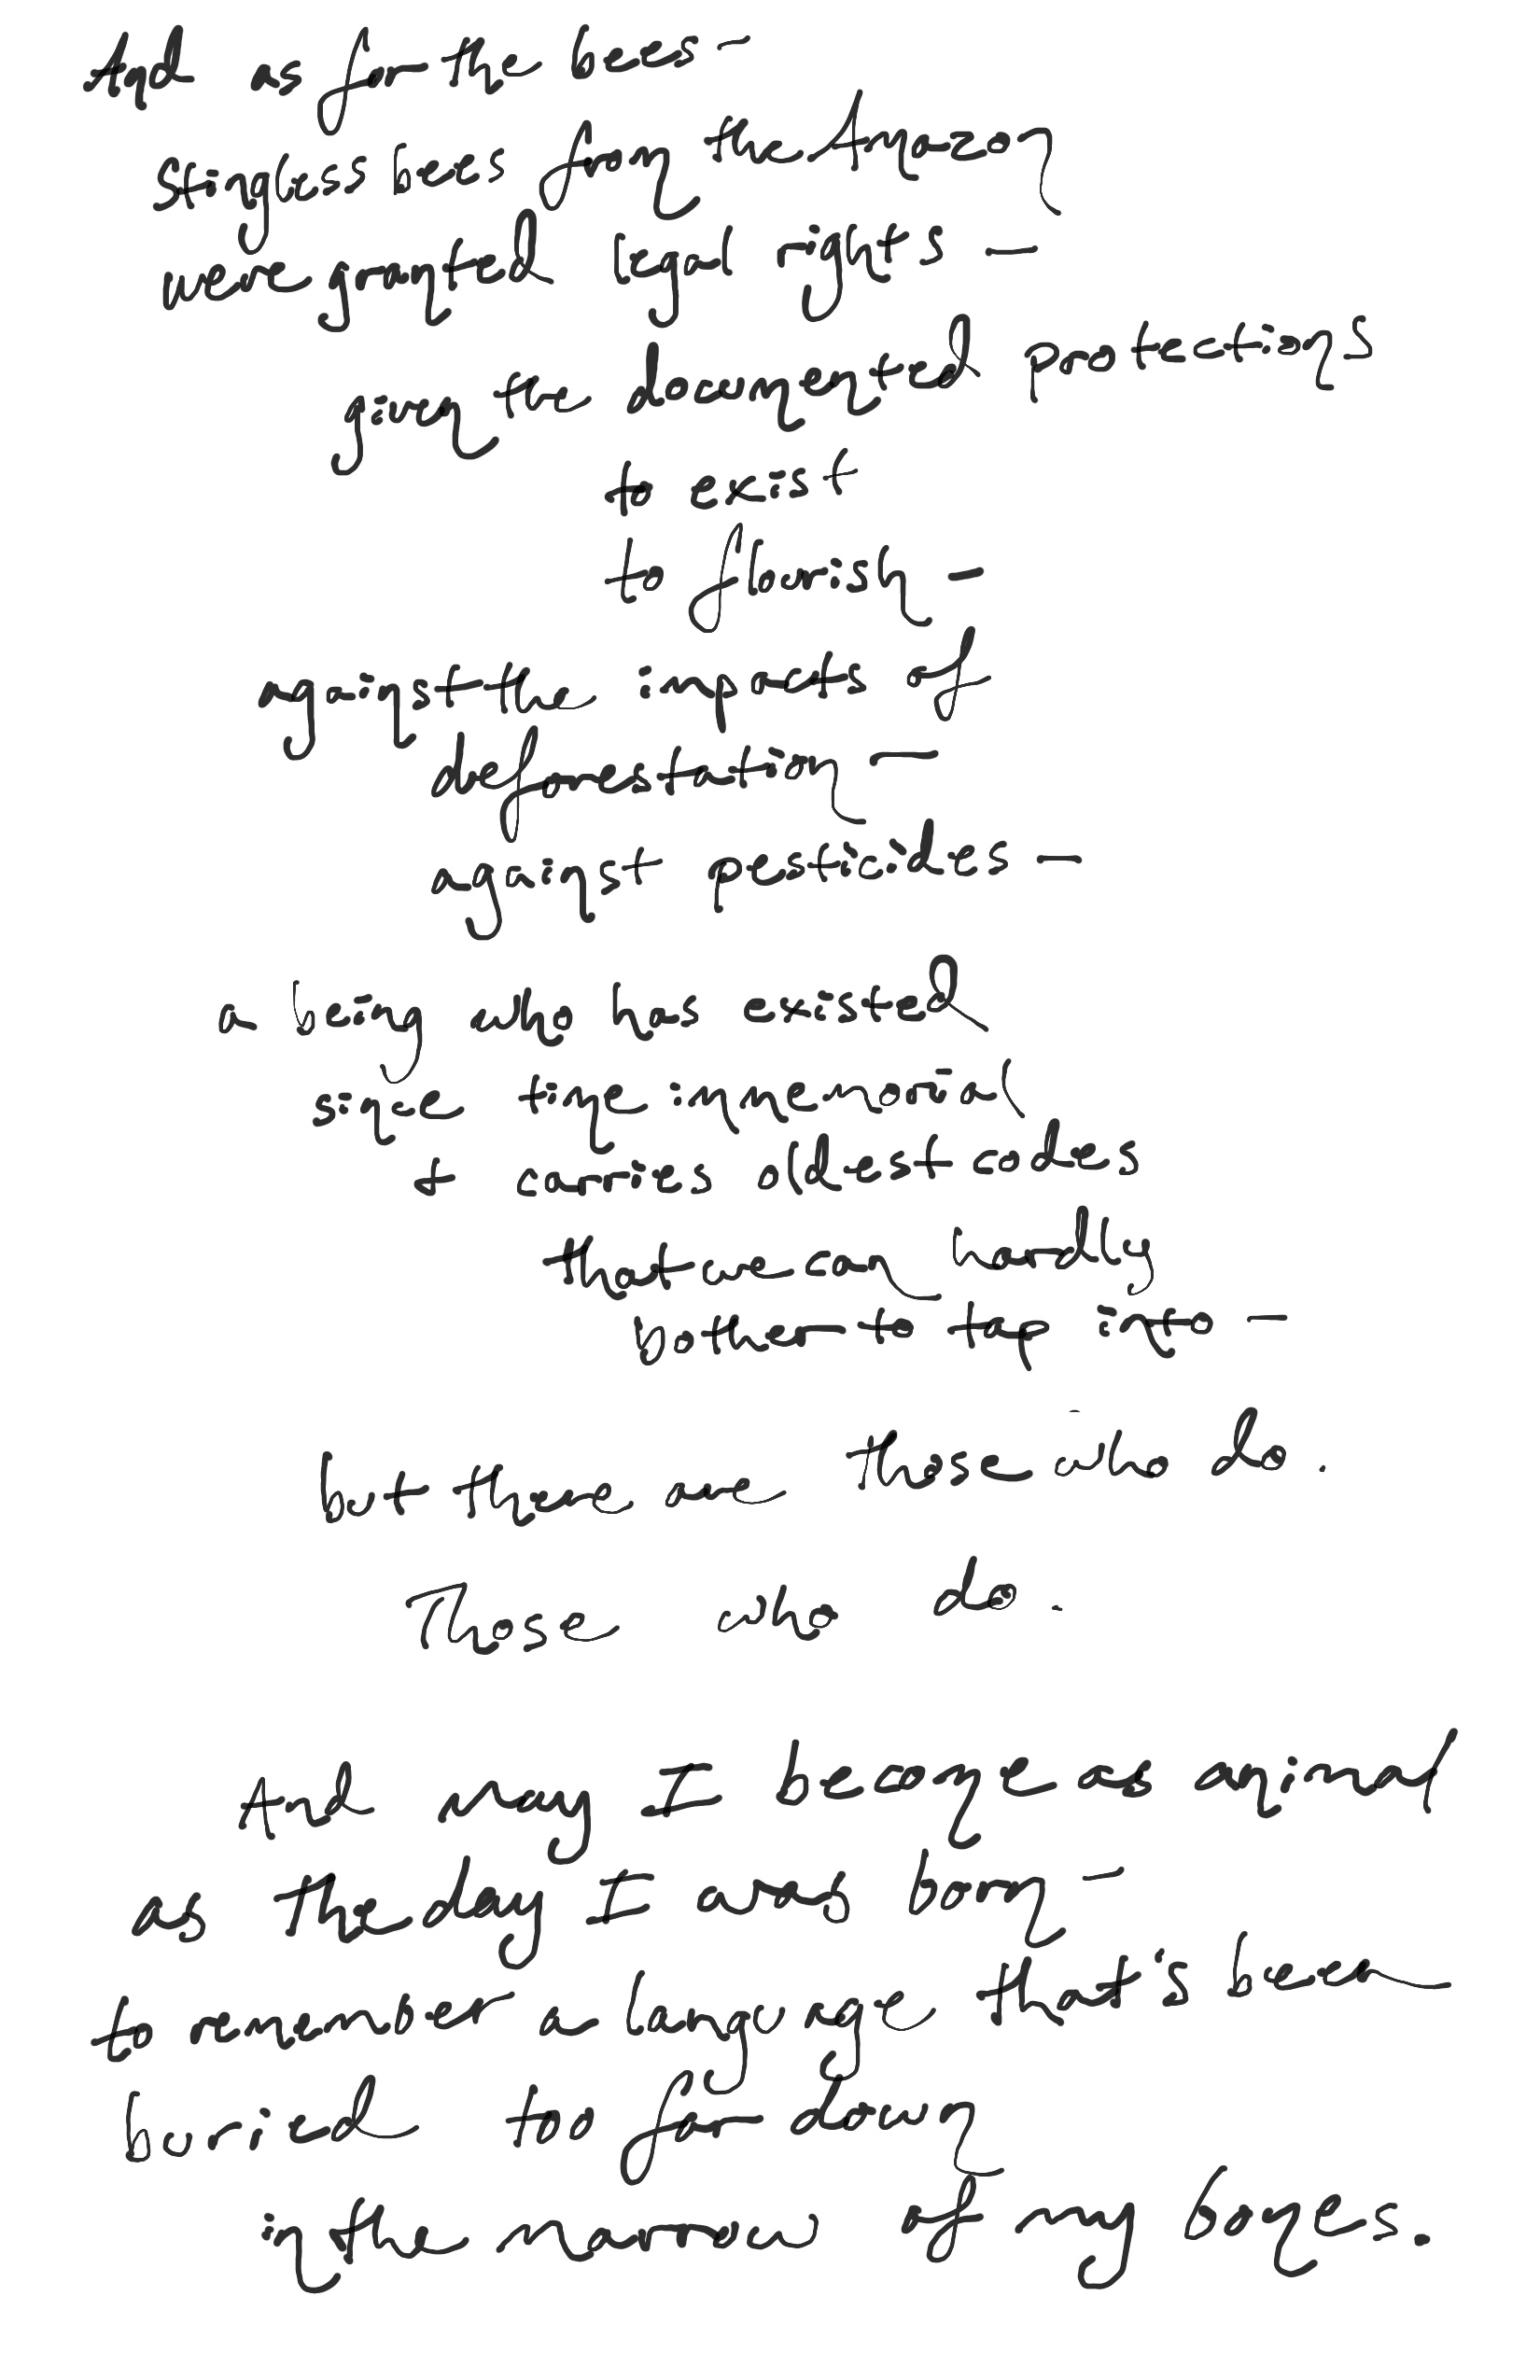 And as for the bees —
stingless bees from the Amazon
were granted legal rights —
given the documented protections
to exist
to flourish —
against the impacts of
deforestation —
against pesticides —
a being who has existed
since time immemorial
+ carries oldest codes
that we can hardly
bother to tap into —
but there are those who do.
Those who do.
And may I become as animal
as the day I was born —
to remember a language that's been
buried too far down
in the marrow of my bones.